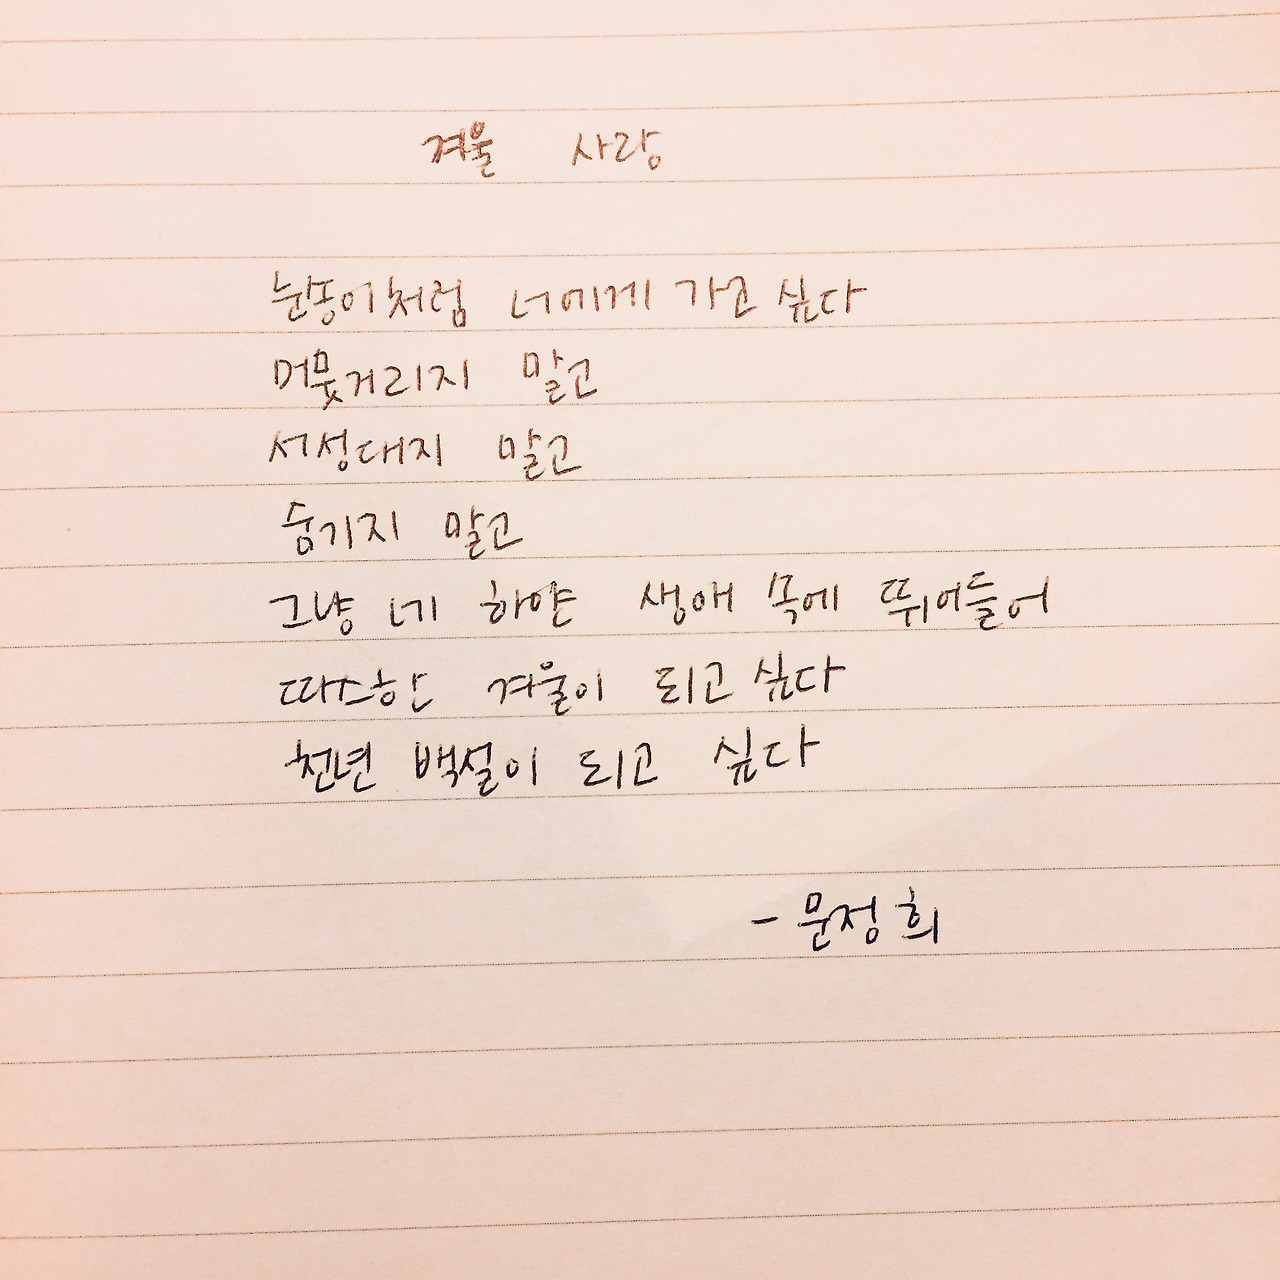 겨울 사랑
눈송이처럼 너에게 가고 싶다
머뭇거리지 말고
서성대지 말고
숨기지 말고
그냥 네 하얀 생애 속에 뛰어들어
따스한 겨울이 되고 싶다
천년 백설이 되고 싶다
- 문정희